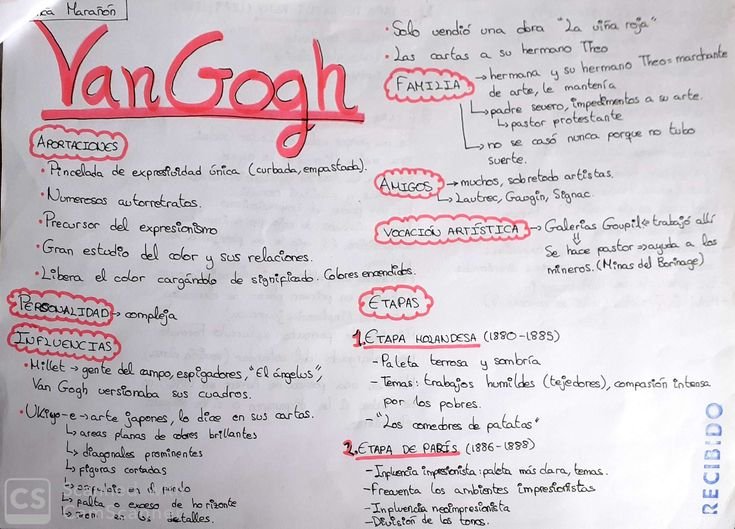 ca Marañón
Van Gogh
APORTACIONES
• Pincelada de expresividad única (curbada, empastada).
• Numerosos autorretratos.
• Precursor del expresionismo
• Gran estudio del color y sus relaciones.
• Libera el color cargándolo de significado. Colores encendidos.
PERSONALIDAD → compleja
INFLUENCIAS
• Millet → gente del campo, espigadores, "El ángelus",
Van Gogh versionaba sus cuadros.
• Ukiyo-e → arte japones, lo dice en sus cartas.
↳ areas planas de colores brillantes
↳ diagonales prominentes
↳ figuras cortadas
en el
↳ falta o exceso de horizonte
en los detalles.
CS
• Solo vendió una obra "La viña roja"
• Las cartas a su hermano Theo
FAMILIA → hermana y su hermano Theo = marchante
de arte, le mantenía
↳ padre severo, impedimentos a su arte.
↳ pastor protestante
↳ no se casó nunca porque no tubo
suerte.
AMIGOS → muchos, sobretodo artistas.
↳ Lautrec, Gaugin, Signac.
VOCACIÓN ARTÍSTICA → Galerias Goupil ← trabajó allí
⇓
Se hace pastor ⇒ ayuda a los
mineros. (Minas del Borinage)
ETAPAS
1. ETAPA HOLANDESA (1880-1885)
- Paleta terrosa y sombría
- Temas: trabajos humildes (tejedores), compasión intensa
por los pobres.
- "Los comedores de patatas"
2. ETAPA DE PARÍS (1886-1888)
- Influencia impresionista: paleta más clara, temas.
- Frecuenta los ambientes impresionistas
- Influencia neoimpresionista
- División de los tonos.
RECIBIDO